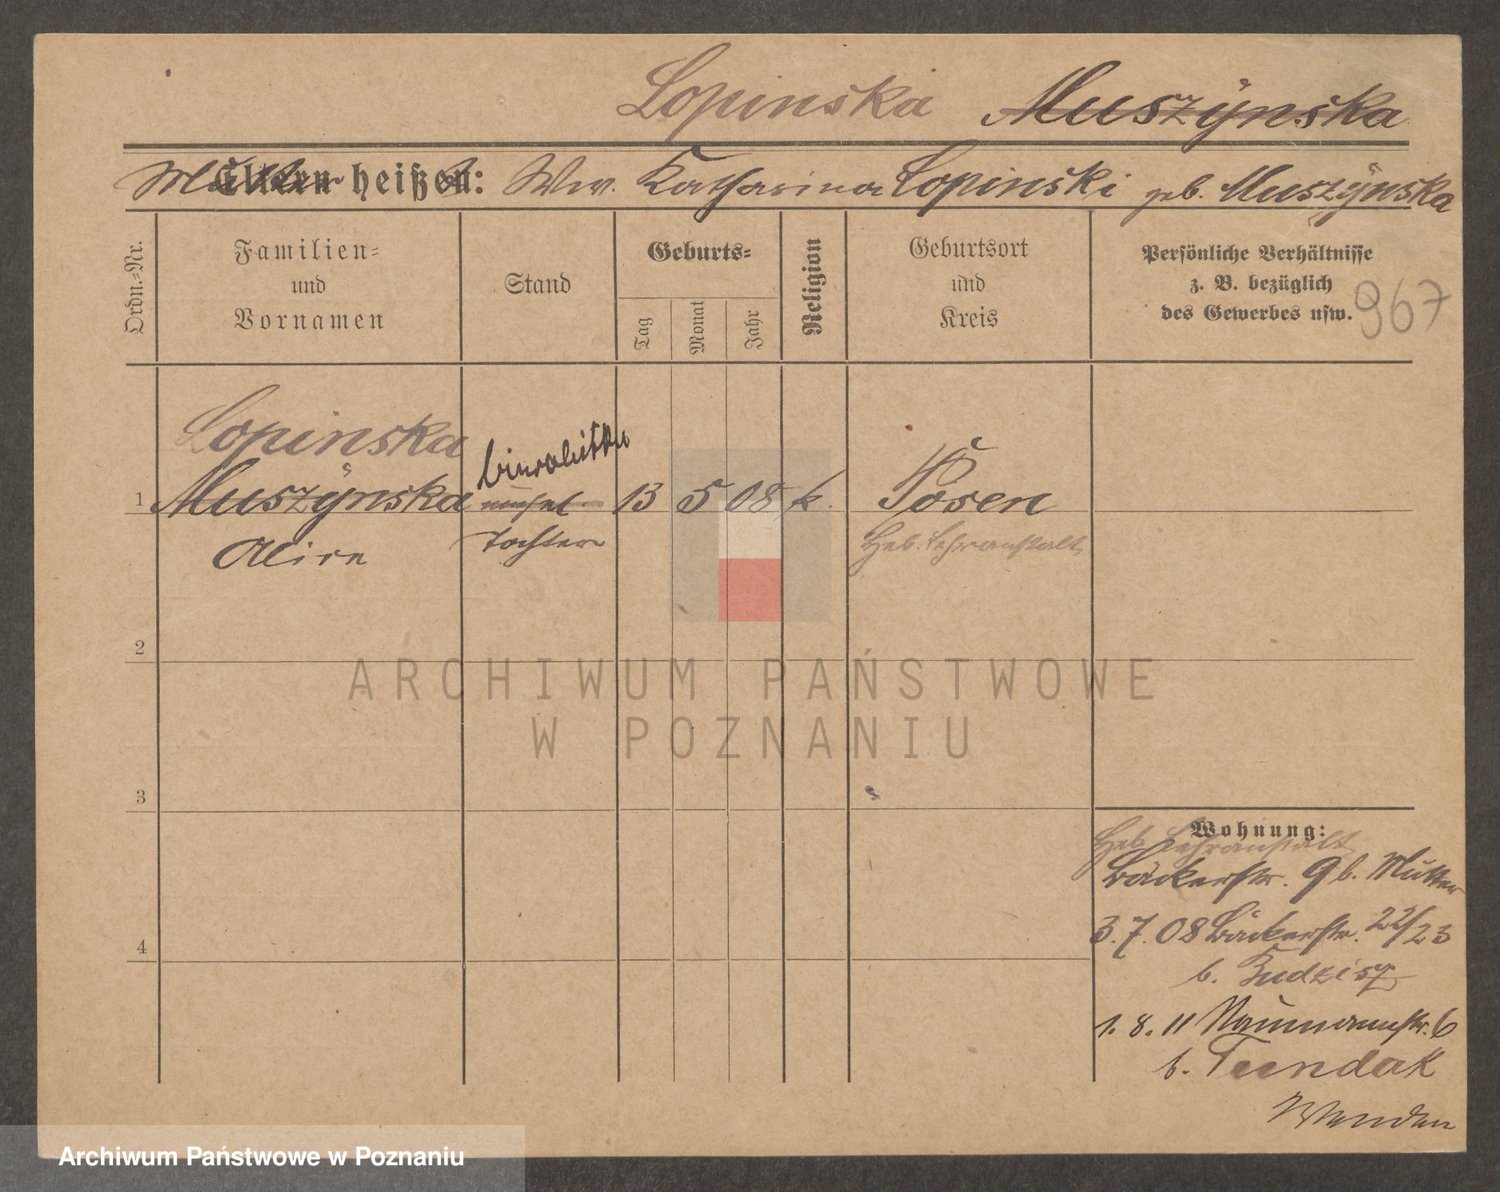 Lopinska Muszÿnska
Mutter heißt: Ww. Katharina Lopinski geb. Muszÿnska
Ordn.-Nr.
Familien-
und
Vornamen
Stand
Geburts-
Tag
Monat
Jahr
Religion
Geburtsort
und
Kreis
Persönliche Verhältnisse
z. B. bezüglich
des Gewerbes usw.
967
Lopinska
1 Muszÿnska unehel. 13 5 08 k. Posen
Tochter
Heb. Lehranstalt
2
3
4
Wohnung:
Heb. Lehranstalt
Bäckerstr. 9 b. Mutter
3.7.08 Bäckerstr. 22/23
b.
1.8.11 Naumannstr. 6
b.
Wenden
ARCHIWUM PAŃSTWOWE
W POZNANIU
Archiwum Państwowe w Poznaniu